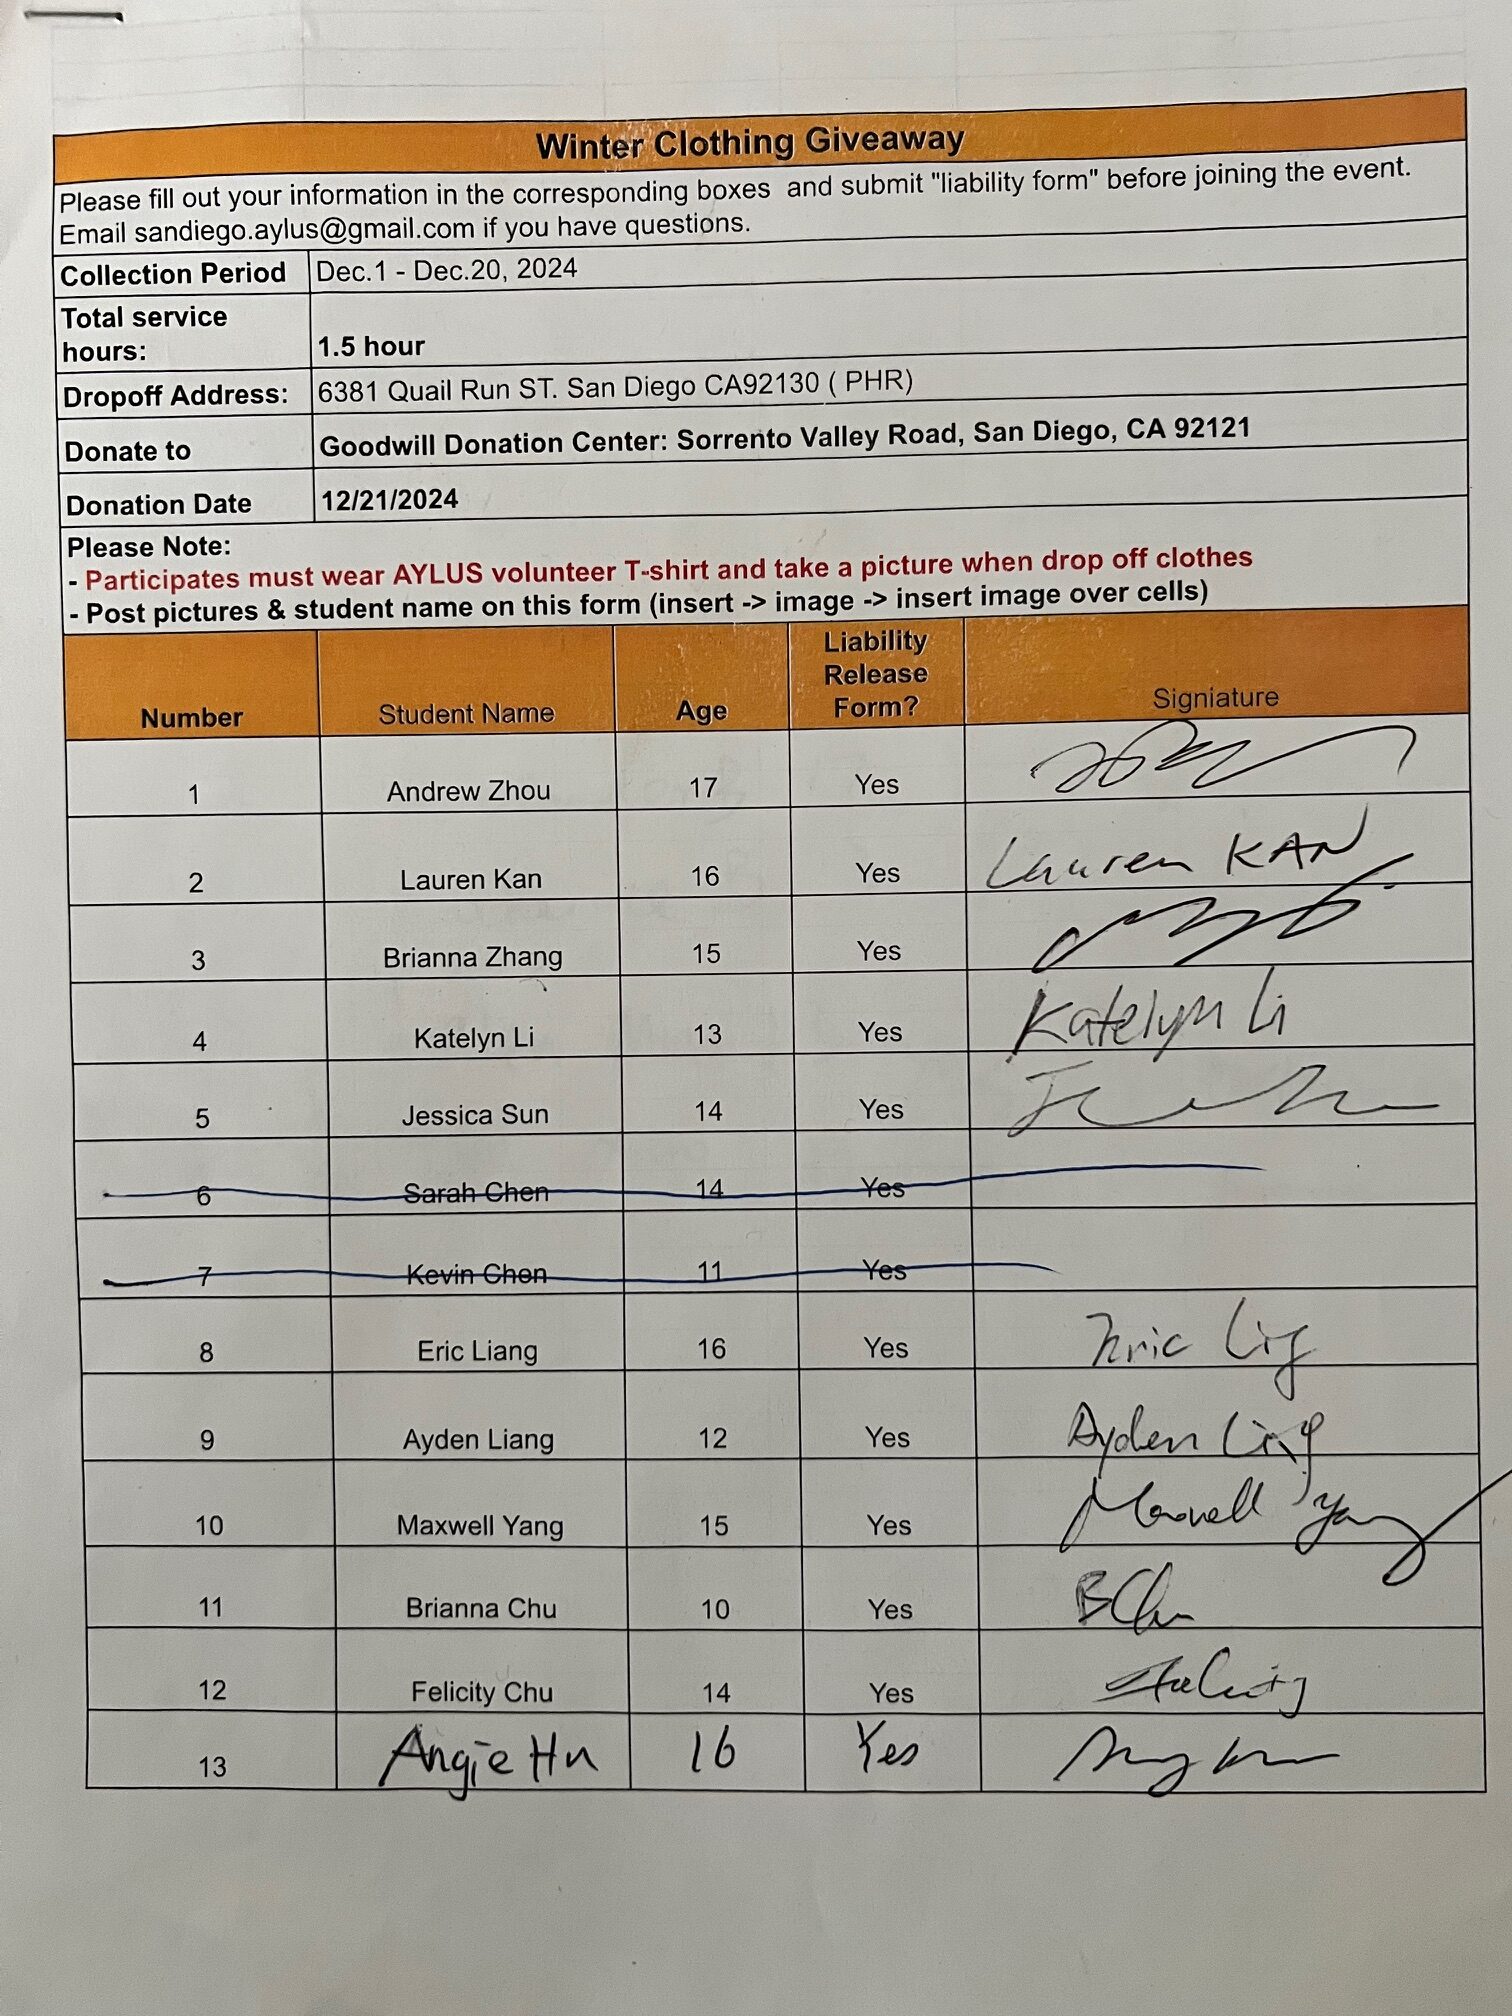 Winter Clothing Giveaway
Please fill out your information in the corresponding boxes and submit "liability form" before joining the event.
Email sandiego.aylus@gmail.com if you have questions.
Collection Period Dec.1 - Dec.20, 2024
Total service
hours: 1.5 hour
Dropoff Address: 6381 Quail Run ST. San Diego CA92130 ( PHR)
Donate to Goodwill Donation Center: Sorrento Valley Road, San Diego, CA 92121
Donation Date 12/21/2024
Please Note:
- Participates must wear AYLUS volunteer T-shirt and take a picture when drop off clothes
- Post pictures & student name on this form (insert -> image -> insert image over cells)
Number Student Name Age Liability Release Form? Signiature
1 Andrew Zhou 17 Yes
2 Lauren Kan 16 Yes Lauren KAN
3 Brianna Zhang 15 Yes
4 Katelyn Li 13 Yes Katelyn Li
5 Jessica Sun 14 Yes
6 Sarah Chen 14 Yes
7 Kevin Chen 11 Yes
8 Eric Liang 16 Yes Eric
9 Ayden Liang 12 Yes Ayden
10 Maxwell Yang 15 Yes Maxwell Yang
11 Brianna Chu 10 Yes BChu
12 Felicity Chu 14 Yes Felicity
13 Angie Hu 16 Yes